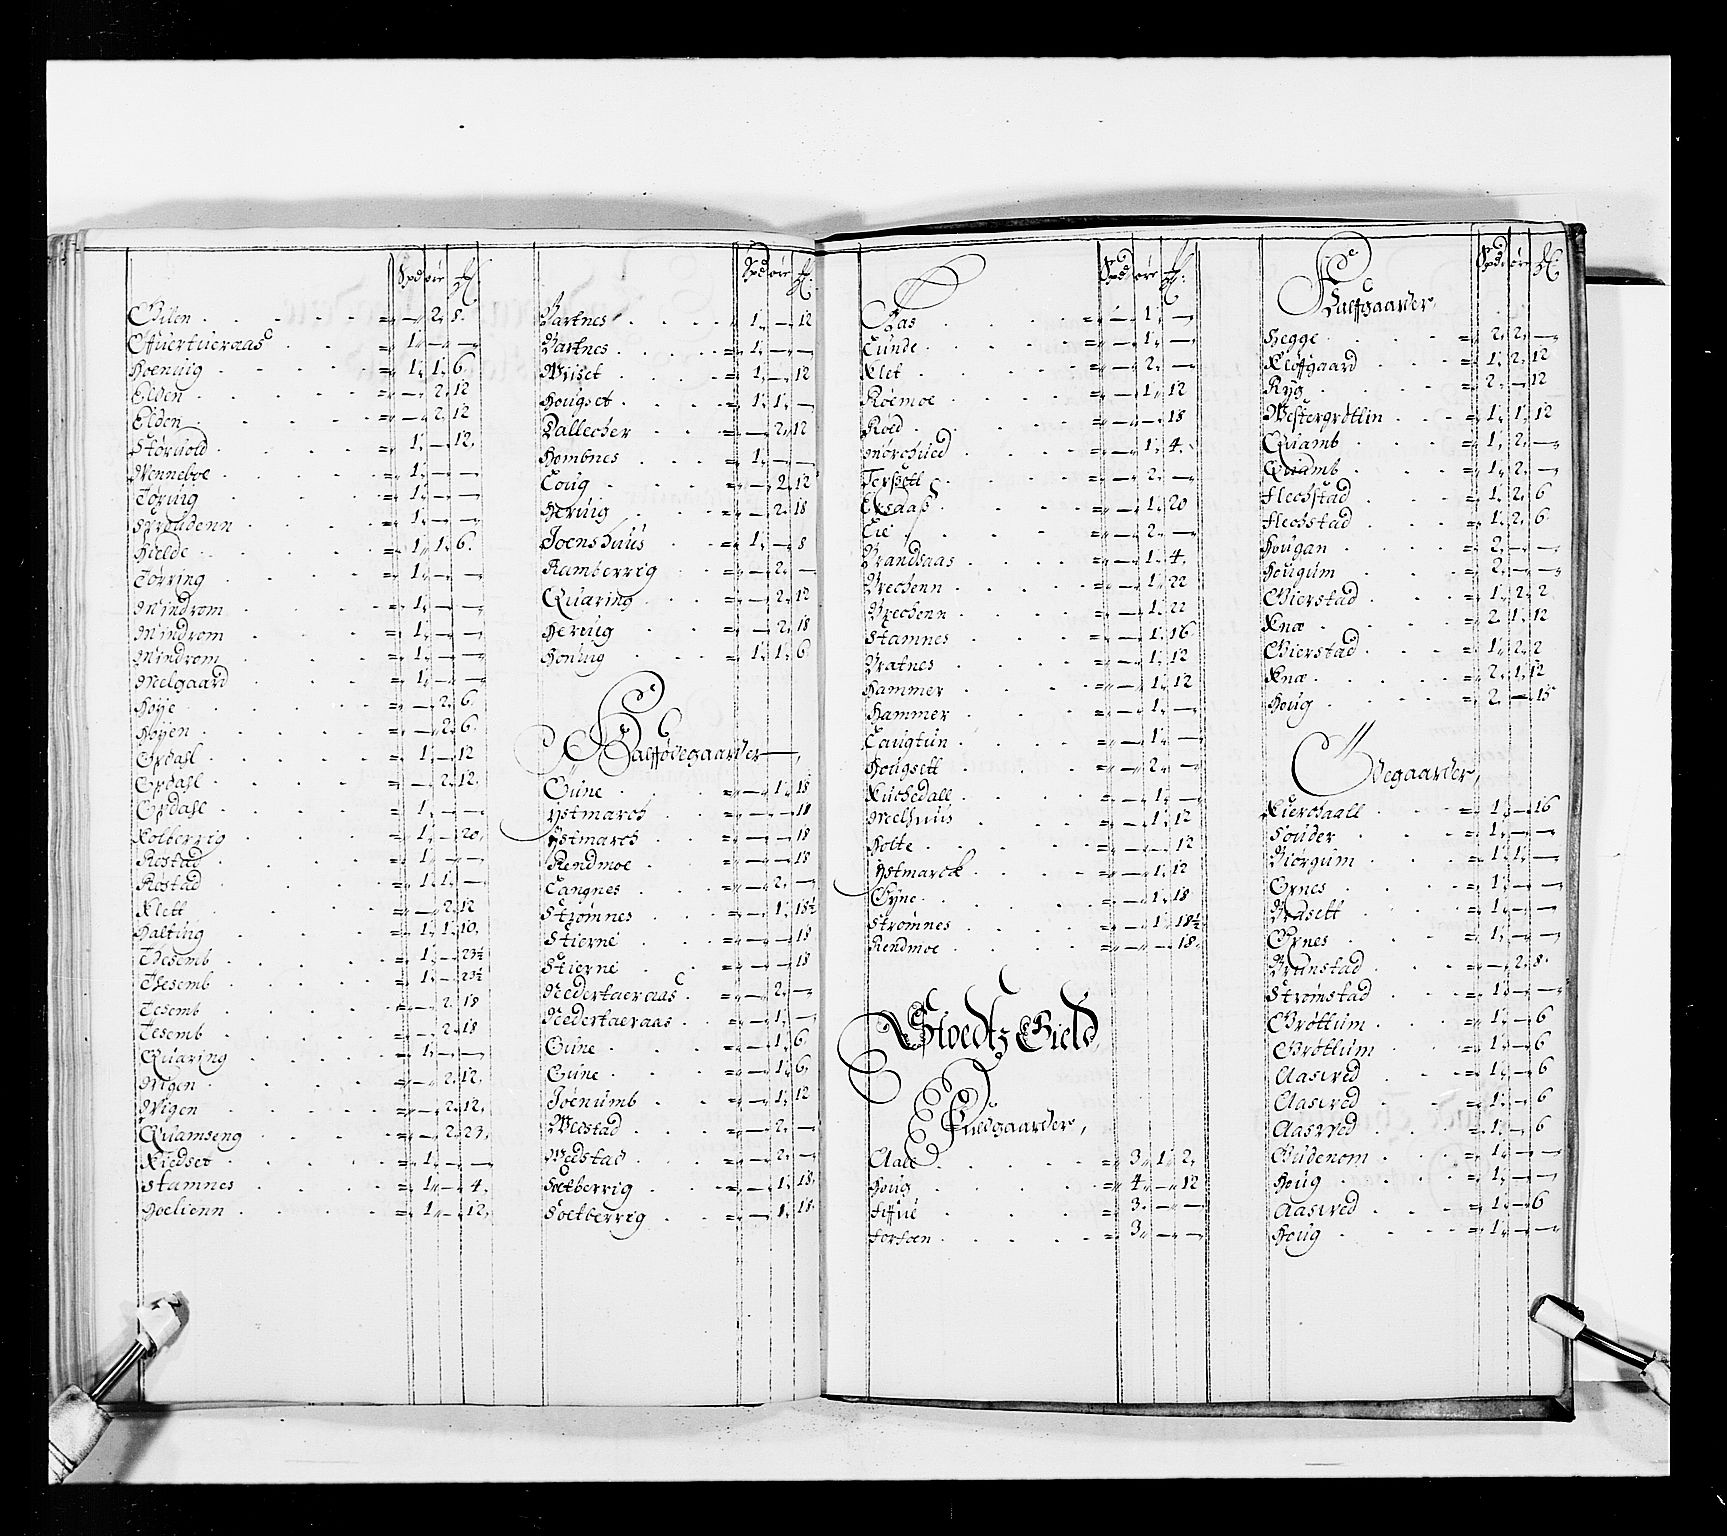 Spd ør
Bilen - 2. 8.
Offuertueraas 1. - -
Hoenuig 1. 1. 6.
Elden - 2. 12
Elden - 2. 12
Støruold 1. - 12.
Wenneboe 1. - -
Tøring 1. - -
Spredenn 1. - -
Hielde 1. 1. 6.
Tørring 1. - -
Mindrom 1. - -
Mindrom 1. - -
Mindrom 1. - -
Melgaard 1. - -
Høÿe - 2. 6.
Høÿen - 2. 6.
Opdall 1. - 12
Opdall - 2. 12.
Opdall 1. - -
Kolberrig 1. - 20.
Røstad 1. - -
Røstad 1. 1. -
Klett - 2. 12
Halting 1. 1. 10.
Thesemb 1. - 23½
Thesemb 1. - 23½
Tesemb - 2. 18
Tesemb - 2. 18
Quaring 1. - -
Wigen - 2. 12.
Wigen - 2. 12.
Quamseng - 2. 23.
Kiedset 1. - -
Stamnes 1. - 4.
Hoelienn 1. - 12.
Spd ør
Vattnes 1. - 12
Vattnes 1. - -
Wriset 1. - 12
Hougset 1. 1. -
Dallecher - 2. 12
Hombnes 1. - -
Loug - 2. 12
Heruig - 2. 18
Joenshuus 1. - 8
Ramberrig - 2. -
Quaring - 2. 12
Heruig - 2. 18
Honuig 1. 1. 6
Halfødegaarder
Sune - 1. 18
Ÿstmarch - - 18
Ÿstmarch - - 18
Rendmoe - - 18
Langnes - 2. -
Strømnes - 1. 18½
Stierne - - 18
Stierne - - 18
Nedertaeraas - 2. -
Nedertaeraas - 1. -
Sune - 1. 6
Sune - 1. 6.
Joenumb - 1. 12
Wedstad - 2. -
Wedstad - 2. -
Solberrig - 1. 18.
Solberrig - 1. 18.
Spd ør
Aas - 1. -
Lunde - 1. -
Klet - 2. -
Roemoe - 1. 12
Røed - - 18
Mørchued - 1. 4.
Tersetl - 2. -
- 1. 20
Lie - 2. -
Brandsaas - 1. 4.
Brechenn - 1. 22
Brechenn - 1. 22
Stamnes - 1. 16.
Vatnes - 1. 12
Hammer - 1. 12
Hammer - 1. -
Laugtun - 1. -
Hougsett - 2. -
Kuchedall - 1. -
Melhuus - 1. 12
Holte - - 12
Ÿstmarck - 1. 12
Sÿne - 1. 18
Strømnes - 1. 18½
Rendmoe - - 18.
Stoedtz Gield
Fuldgaarder,
Aale 3. 1. 2.
Houg 4. - 12
Fiffue 3. - -
Forsoen 3. - -
Spd. ør
Halfgaarder,
Hegge 2. 2. -
Kløffgaard 1. 2. 12
Rÿg 2. - 12
Westergrøtlin 1. 1. 12
Quamb 1. 2. -
Quamb 1. 2. -
Flechstad 1. 2. 6
Flechstad 1. 2. 6.
Hougan 2. - -
Hougum 2. - -
Gierstad 1. 2. 2
Knæ 2. 1. 12
Gierstad 1. 2. 2
Knæ 2. 1. 12
Houg 2 - 15
Ødegaarder,
Kierchaall 1. - 16
Souder 1. - -
Biorgum 1. 1. -
Ørnes 1. - -
Brusett 1. - -
Ørnes 1. - -
Brunstad - 2. 8.
Strømstad 1. - -
Grøttum 1. - 6
Grøttum 1. - 6
Aasued 1. - 6
Aasued 1. - 6
Aasued 1. - 6
Gudenom 1. - -
Houg 1. - -
Aasued 1. - 6
Houg 1. - -